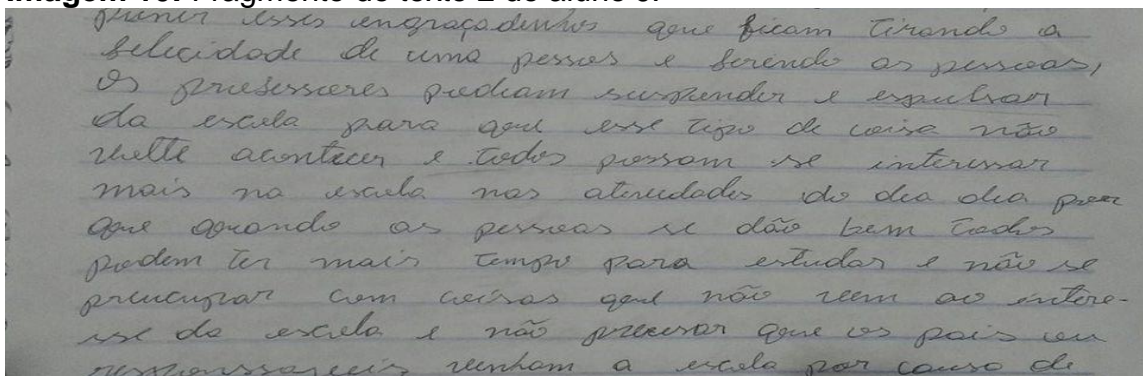 Imagem 10: Fragmento do texto 2 do aluno 3.
punir esses engraçadinhos que ficam tirando a
felicidade de uma pessoas e ferindo as pessoas,
os professores podiam suspender e expulsar
da escola para que esse tipo de coisa não
volte acontecer e todos possam se interessar
mais na escola nas atividades do dia dia por
que quando as pessoas se dão bem todos
podem ter mais tempo para estudar e não se
preucupar com coisas que não vem ao intere-
sse da escola e não precisar que os pais ou
responssaveis venham a escola por causa de